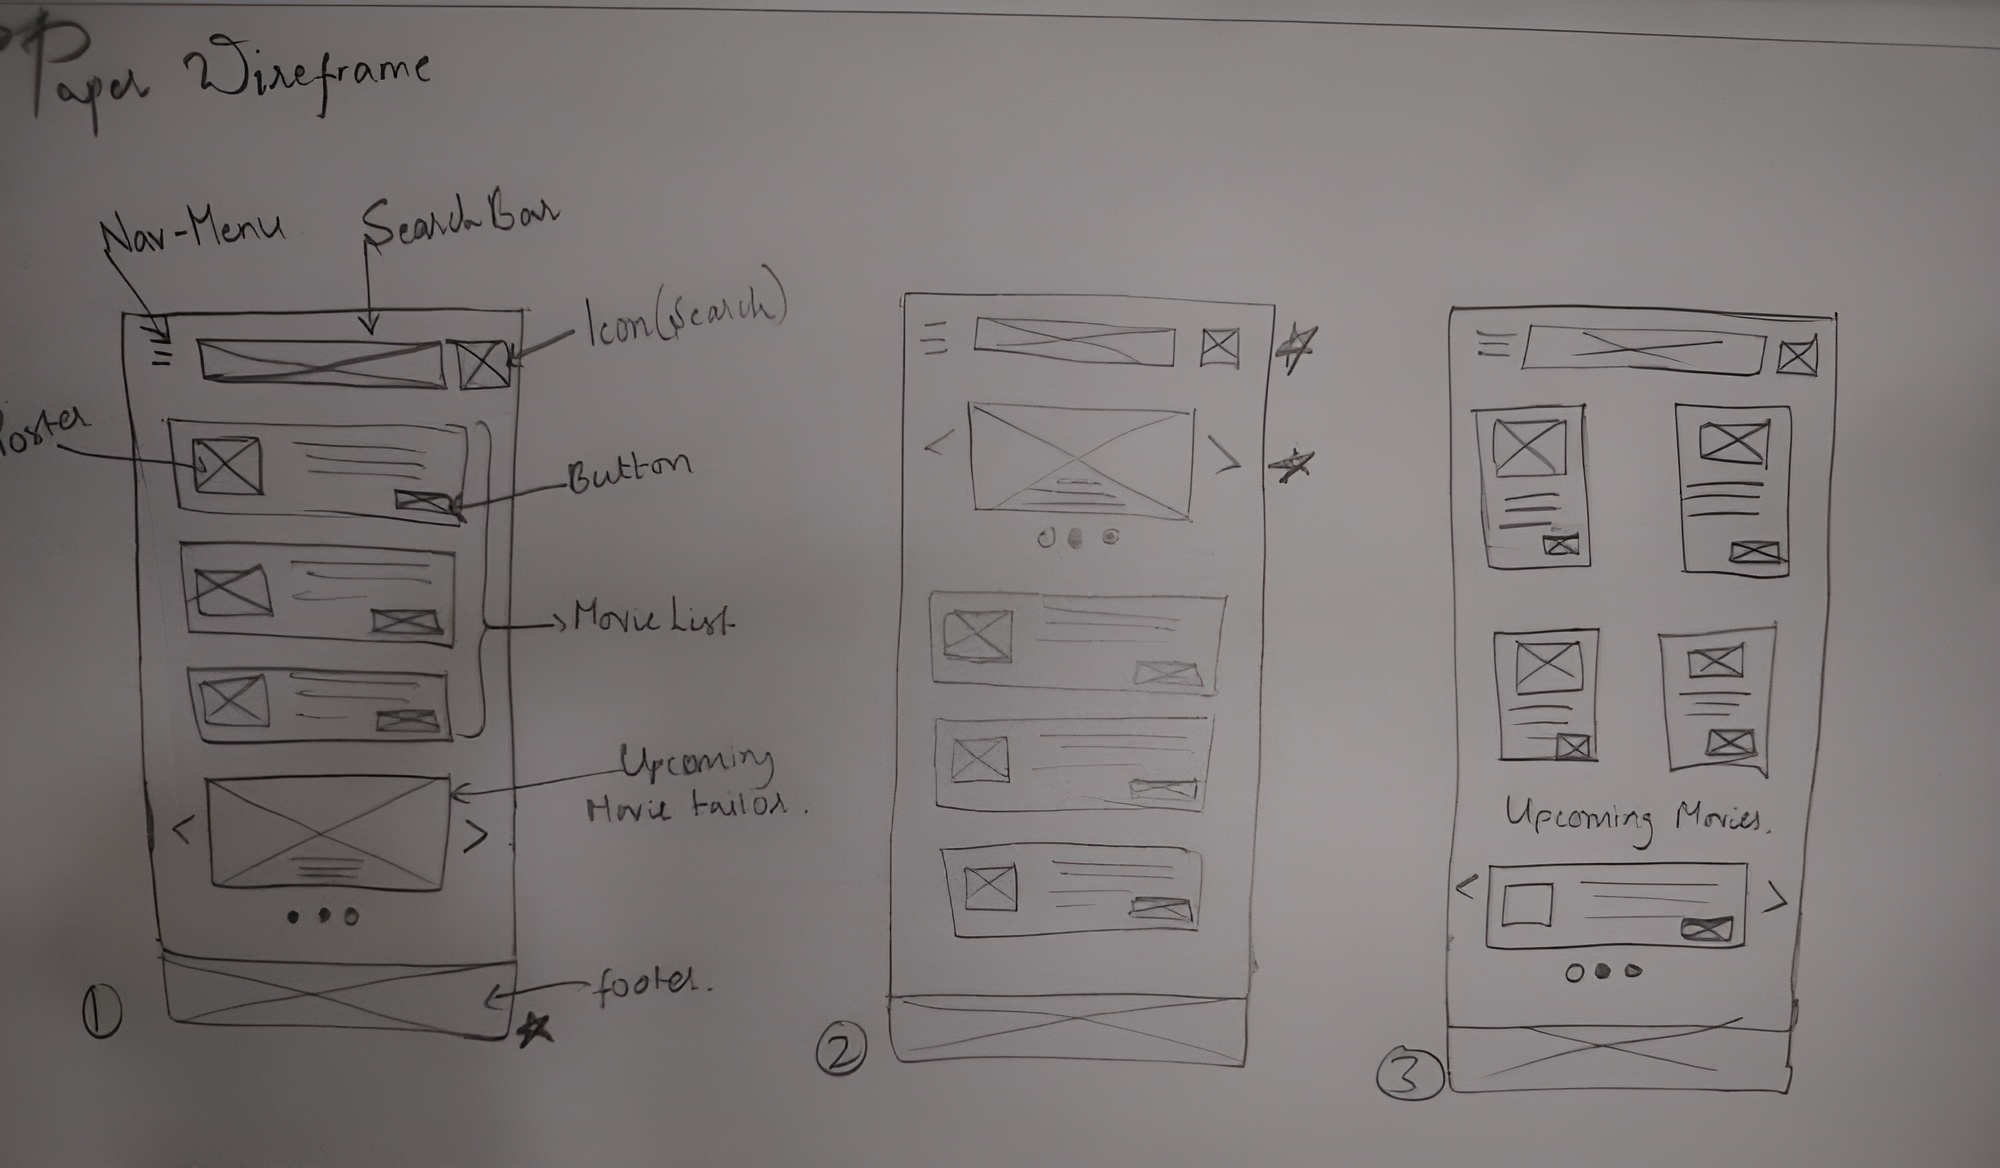 Paper Wireframe
Nav-Menu
Search Bar
Icon (Search)
Poster
Button
Movie List
Upcoming
Movie tailor.
footer.
Upcoming Movies.
1
2
3